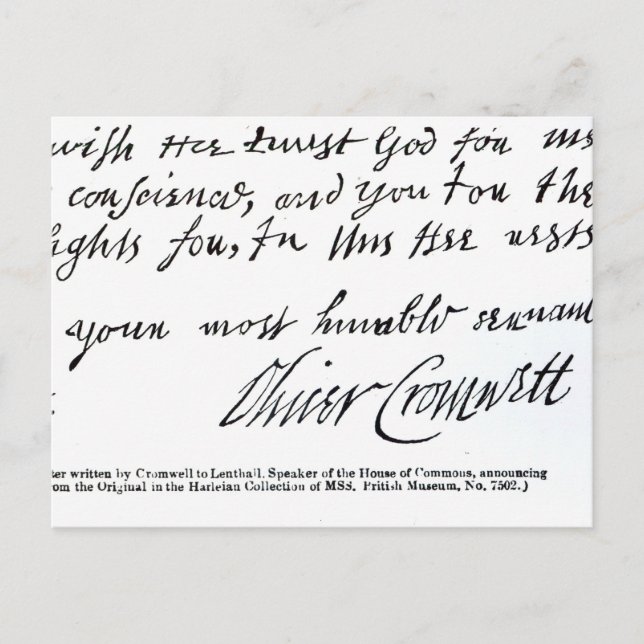 wish Hee trust God for
conscience, and you for the
fights for, In this Hee rests
your most humble servant
Oliver Cromwell
ter written by Cromwell to Lenthall, Speaker of the House of Commons, announcing
om the Original in the Harleian Collection of MSS. British Museum, No. 7502.)